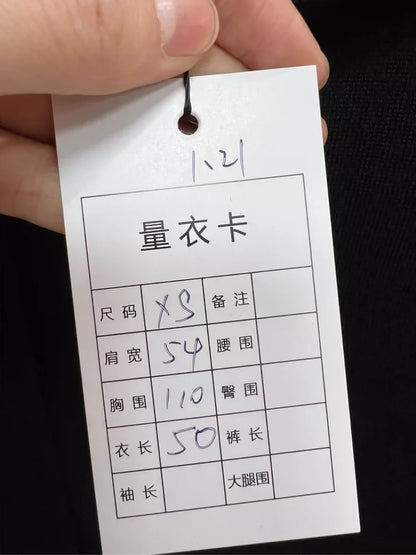 1、21
量衣卡
尺码 XS 备注
肩宽 54 腰围
胸围 110 臀围
衣长 50 裤长
袖长 大腿围